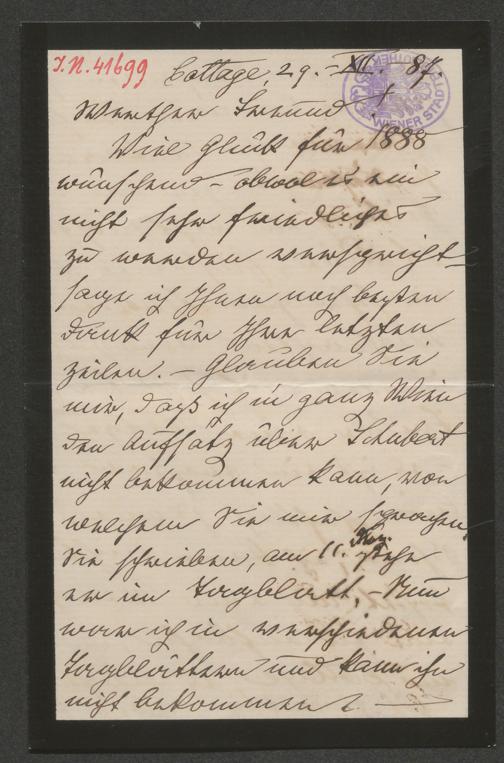 I.N. 41699
Cottage, 29. XII. 87.
WIENER STADT
Werther Freund!
Viel Glück für 1888
wünschend – obwol es ein
nicht sehr friedliches
zu werden verspricht –
sage ich Ihnen noch besten
Dank für Ihre letzten
Zeilen. – Glauben Sie
mir, daß ich in ganz Wien
den Aufsatz über Schubert
nicht bekommen kann, von
welchem Sie mir sprachen,
Sie schrieben, am 11. Nov. stehe
er im Tagblatt, – Nun
war ich in verschiedenen
Tagblättern und kann ihn
nicht bekommen